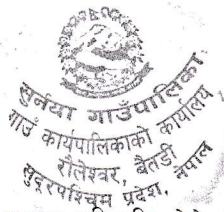 सुर्नया गाउँपालिका
गाउँ कार्यपालिकाको कार्यालय
रौलेश्वर, बैतडी
सुदूरपश्चिम प्रदेश, नेपाल